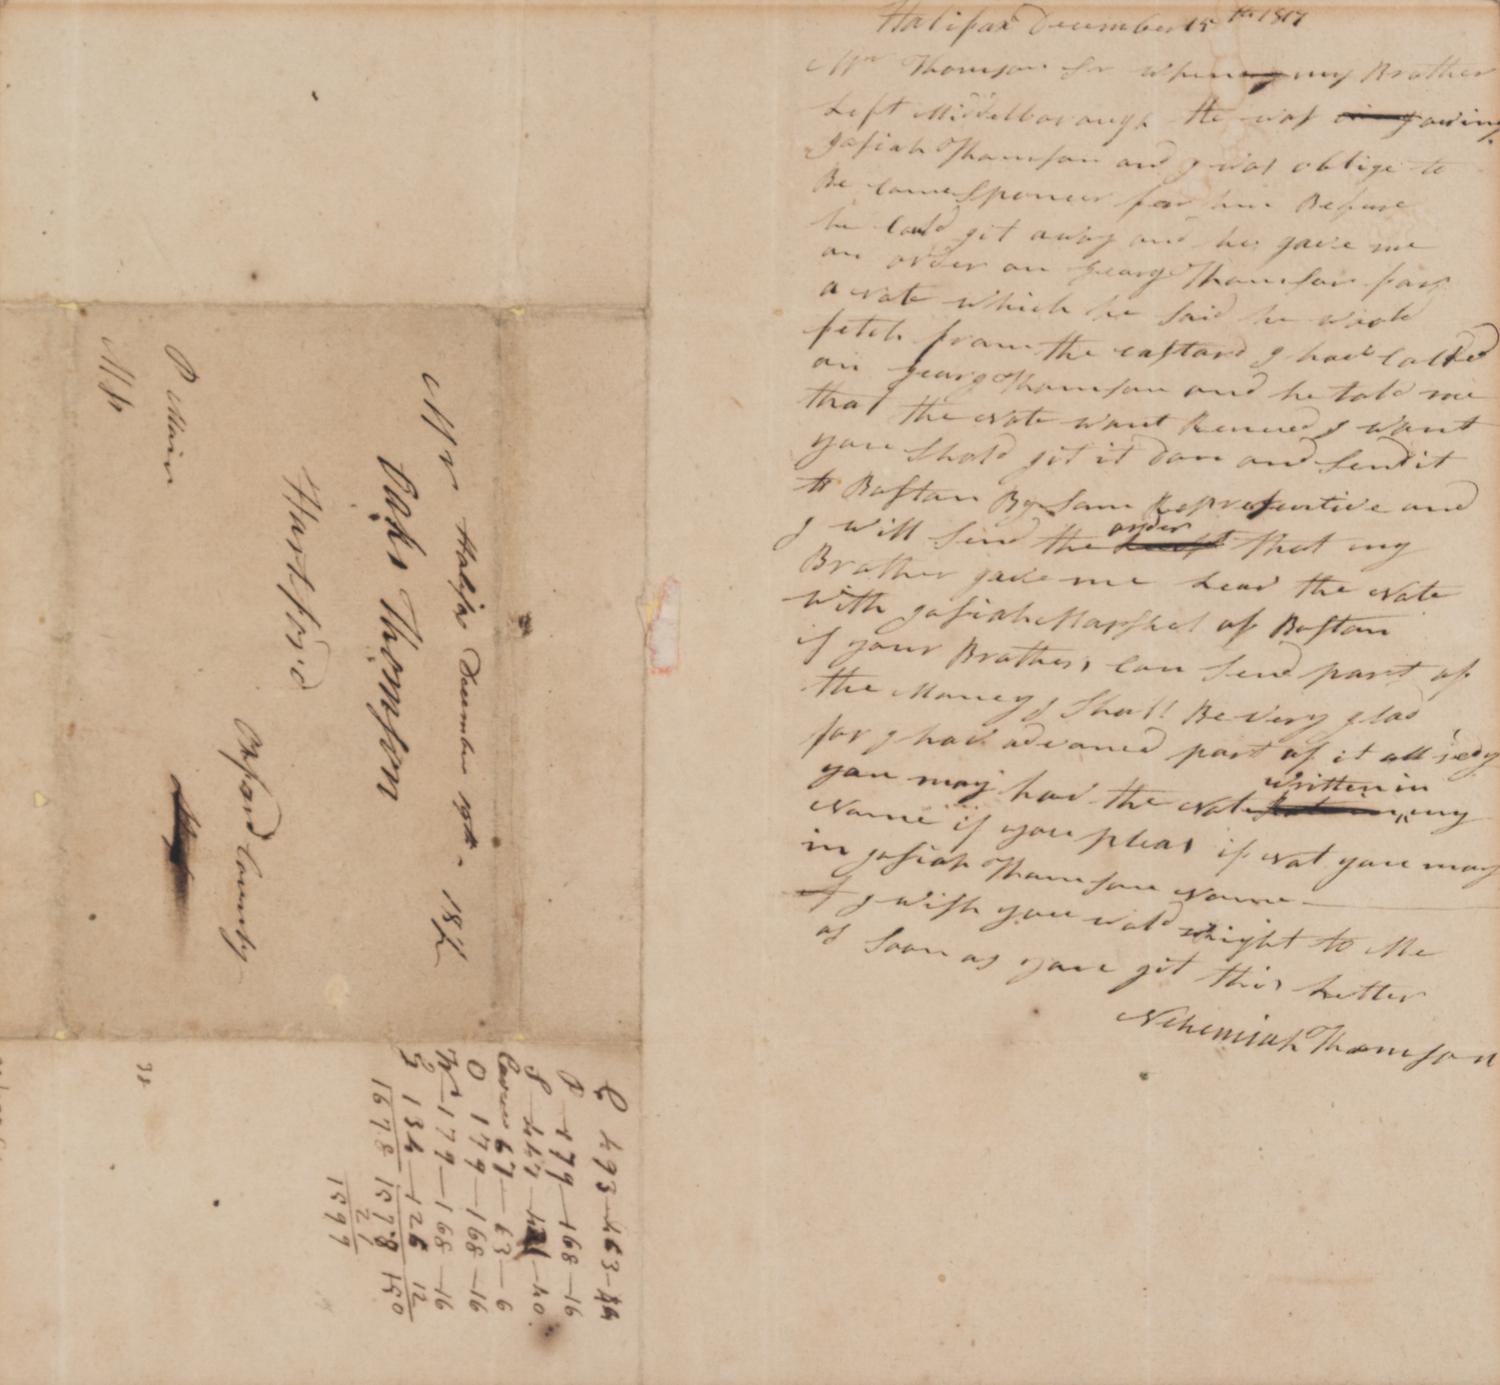 Halifax December 15th 1817
Mr Thomson Sr when my Brother
Left Middelborough He was gowing
Josiah Thomson and I was oblige to
Be come Sponcer for him Before
he Could git away and he gave me
an order on georg Thomson for
a Note which he Said he wold
fetch from the eastard I have Called
on georg Thomson and he told me
that the Note want Renued I want
you Shold git it Don and Send it
to Boston By Som Represeentive and
I will Send the order that my
Brother gave me Leav the Note
with Josiah Marshel of Boston
if your Brothers Can Send part of
the Money I Shall Be very glad
for I have advanced part of it all redy
you may have the Note written in my
Name if you pleas if Not you may
in Josiah Thomson Name
I wish you wold wright to Me
as Soon as you git this Letter
Nehemiah Thomson
Halifax December 19th 18
Mr
Oaks Thomson
Hartford
Oxford County
P Main
38
493 463
179 168 16
Carver 67 63 6
O 179 168 16
179 168 16
134 126 12
1678 1578 150
21
1599